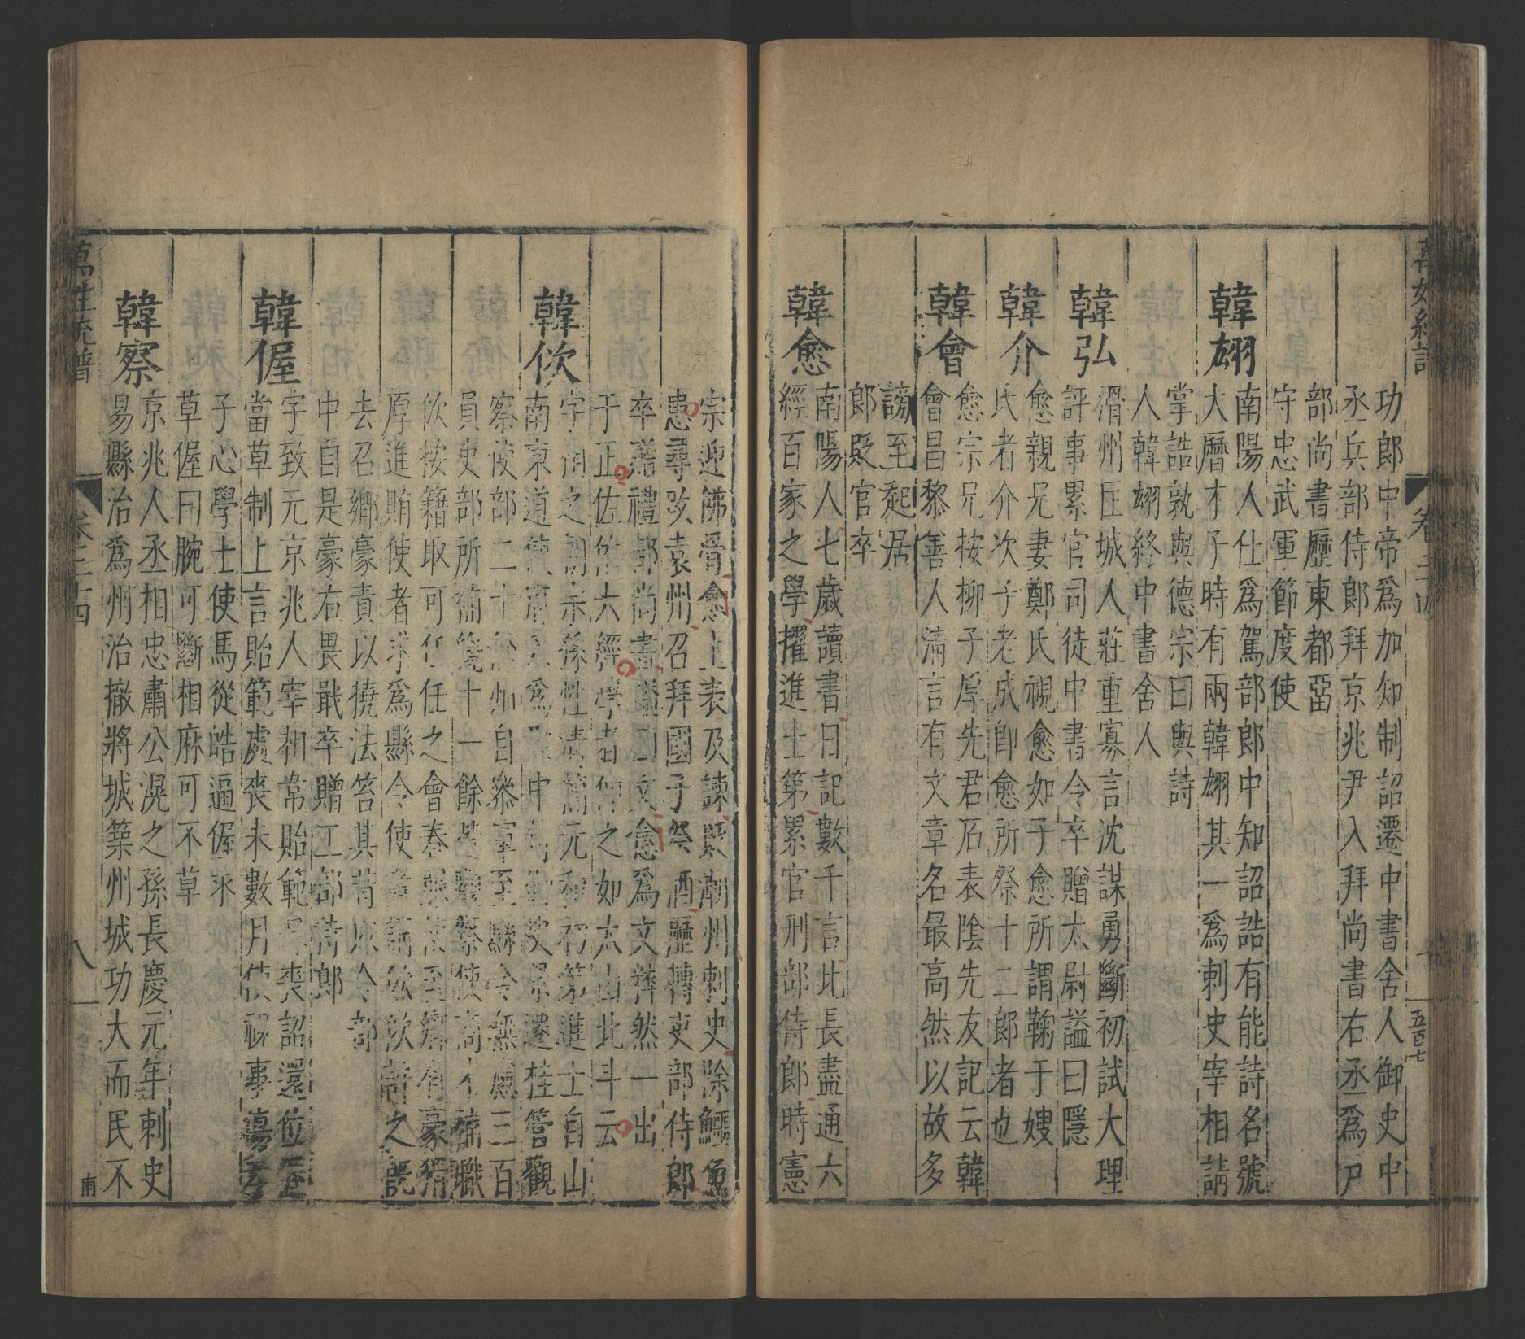 功郎中帝爲加知制詔遷中書舍人御史中
丞兵部侍郎拜京兆尹入拜尚書右丞爲戶
部尚書歷東都畱
守忠武軍節度使
韓翃
南陽人仕爲駕部郎中知詔誥有能詩名號
大曆才子時有兩韓翃其一爲刺史宰相請
掌誥敦與德宗曰與詩
人韓翃終中書舍人
韓弘
滑州匡城人莊重寡言沈謀勇斷初試大理
評事累官司徒中書令卒贈太尉謚曰隱
韓介
愈親兄妻鄭氏視愈如子愈所謂鞠于嫂
氏者介次子老成卽愈所祭十二郎者也
韓會
愈宗兄按柳子厚先君石表陰先友記云韓
會昌黎善人淸言有文章名最高然以故多
謗至起居
郎貶官卒
韓愈
南陽人七歲讀書日記數千言比長盡通六
經百家之學擢進士第累官刑部侍郎時憲
宗迎佛骨愈上表及諫貶潮州刺史除鱷魚
患尋改袁州召拜國子祭酒歷轉吏部侍郎
卒贈禮部尚書謚曰文愈爲文粹然一出
于正佐佑六經學者仰之如太山北斗云
韓佽
字相之詞宗孫性淸簡元和初第進士自山
南東道使府入爲
中
次
遷桂管觀
察使部二十餘州自叅軍至縣令無慮三百
員吏部所補纔十一餘皆觀察使商才補職
佽按籍取可任任之會春
有豪猾
厚進賄使者求爲縣令使者請佽佽許之旣
去召鄉豪責以撓法笞其背以令部
中自是豪右畏戢卒贈工部侍郎
韓偓
字致元京兆人宰相常貽範居喪詔還位偓
當草制上言貽範處喪未數月使視事傷孝
子心學士使馬從皓逼偓求
草偓曰腕可斷相麻可不草
韓察
京兆人丞相忠肅公滉之孫長慶元年刺史
易縣治爲州治撤將城築州城功大而民不
萬姓統譜
卷二十四
八
南
五百七